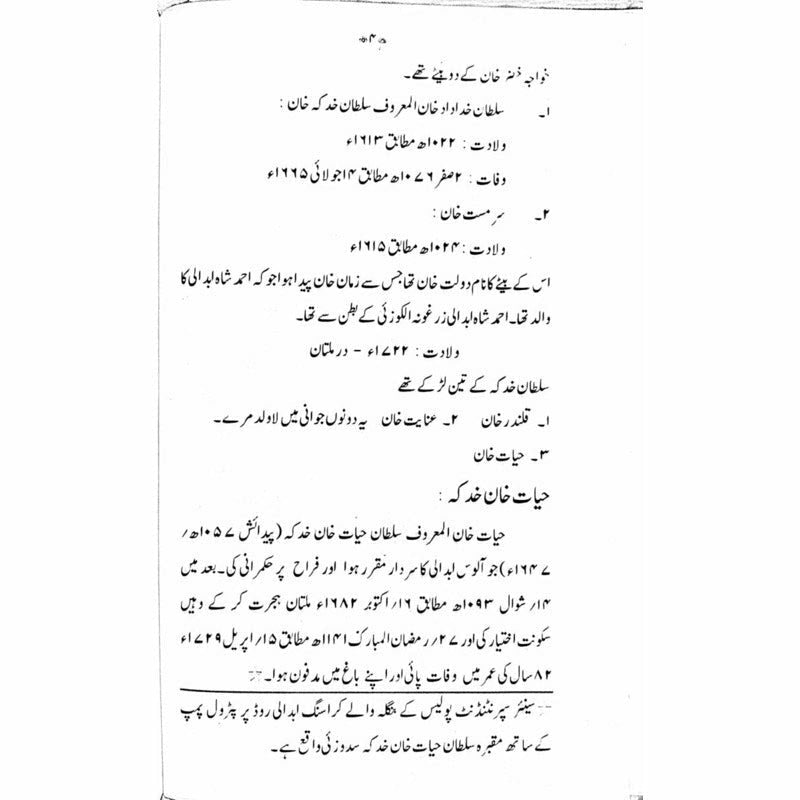 ﴿۴﴾
خواجہ خضر خان کے دو بیٹے تھے۔
۱۔ سلطان خداداد خان المعروف سلطان خدکہ خان :
ولادت : ۱۰۲۲ھ مطابق ۱۶۱۳ء
وفات : ۲صفر ۱۰۷۶ھ مطابق ۱۴جولائی ۱۶۶۵ء
۲۔ سرمست خان :
ولادت : ۱۰۲۴ھ مطابق ۱۶۱۵ء
اس کے بیٹے کا نام دولت خان تھا جس سے زمان خان پیدا ہوا جو کہ احمد شاہ ابدالی کا
والد تھا۔ احمد شاہ ابدالی زرغونہ الکوزئی کے بطن سے تھا۔
ولادت : ۱۷۲۲ء - در ملتان
سلطان خدکہ کے تین لڑکے تھے
۱۔ قلندر خان ۲۔ عنایت خان یہ دونوں جوانی میں لاولد مرے۔
۳۔ حیات خان
حیات خان خدکہ :
حیات خان المعروف سلطان حیات خان خدکہ (پیدائش ۱۰۵۷ھ/
۱۶۴۷ء) جو آلوس ابدالی کا سردار مقرر ہوا اور فراح پر حکمرانی کی۔ بعد میں
۱۴/ شوال ۱۰۹۳ھ مطابق ۱۶/ اکتوبر ۱۶۸۲ء ملتان ہجرت کر کے وہیں
سکونت اختیار کی اور ۲۷/ رمضان المبارک ۱۱۴۱ھ مطابق ۱۵/ اپریل ۱۷۲۹ء
۸۲ سال کی عمر میں وفات پائی اور اپنے باغ میں مدفون ہوا۔
سینئر سپرنٹنڈنٹ پولیس کے بنگلہ والے کراسنگ ابدالی روڈ پر پٹرول پمپ
کے ساتھ مقبرہ سلطان حیات خان خدکہ سدوزئی واقع ہے۔